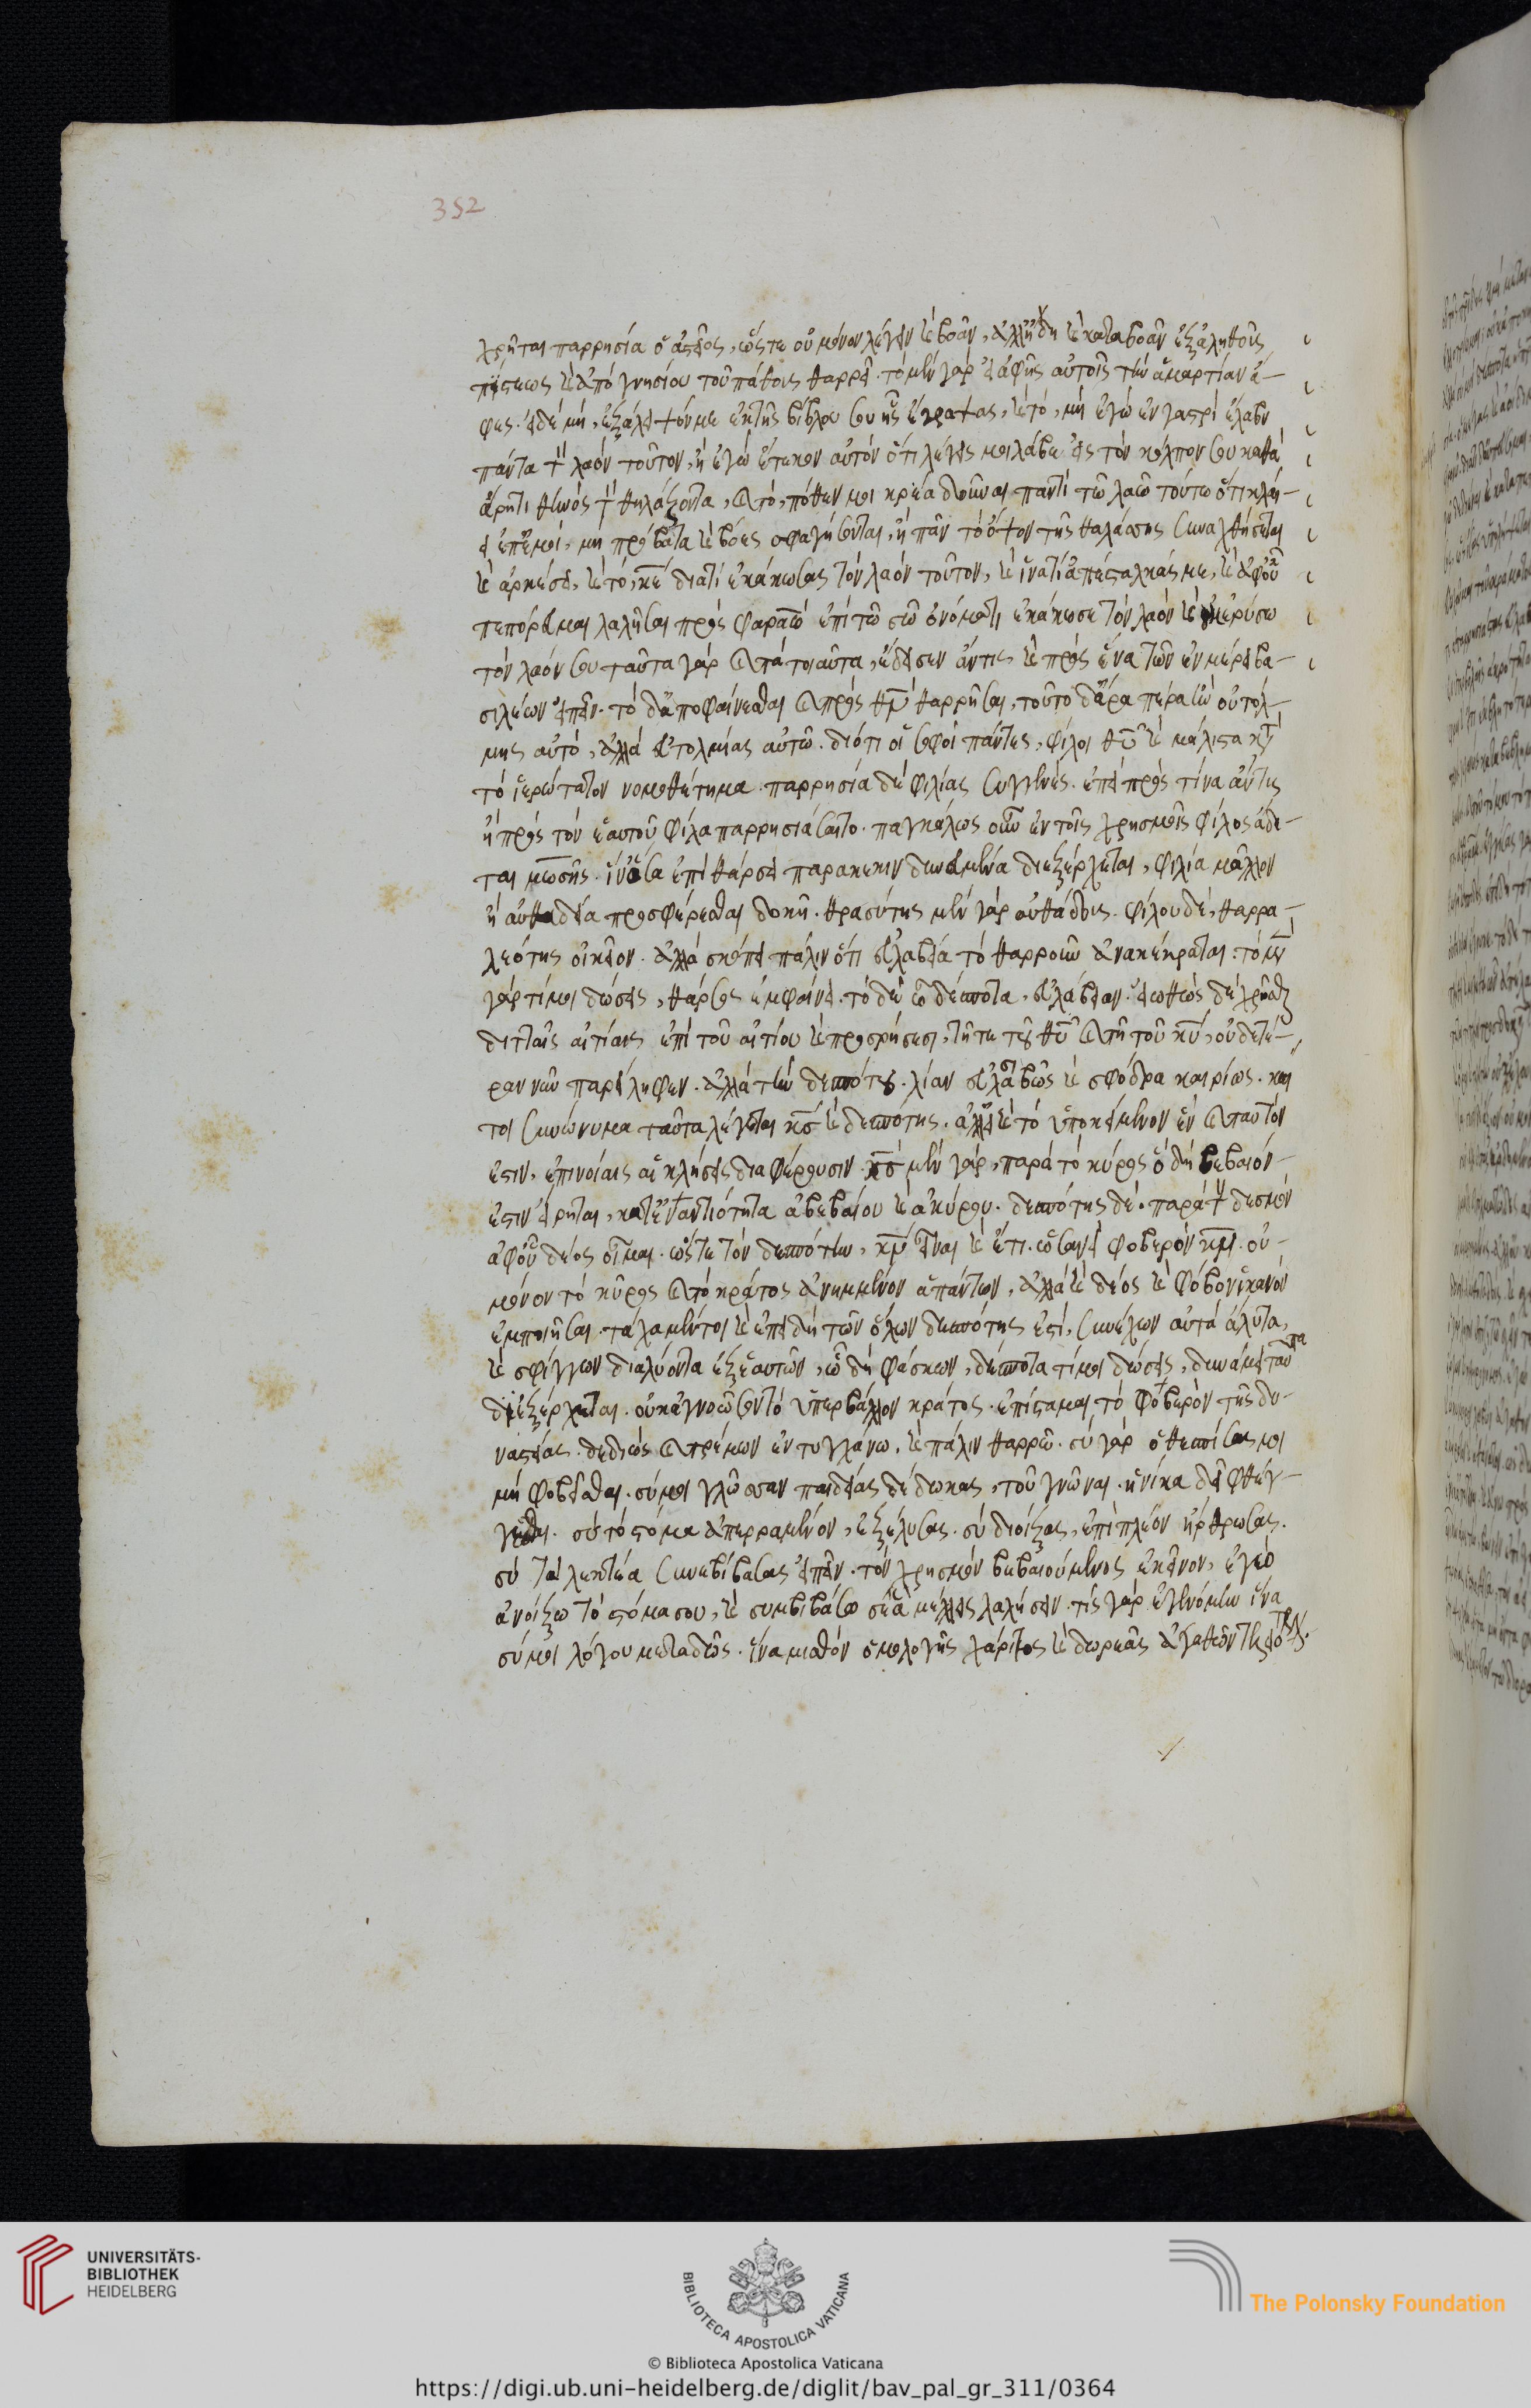 352
χρῆται παρρησία ὁ ἀστεῖος, ὥστε οὐ μόνον λέγειν καὶ βοᾶν, ἀλλ' ἤδη καὶ καταβοᾶν ἐξ ἀληθοῦς
πίστεως καὶ ἀπὸ γνησίου τοῦ πάθους θαρρεῖ. τὸ μὲν γὰρ εἰ ἀφῆς αὐτοῖς τὴν ἁμαρτίαν ἄ-
φες. εἰ δὲ μή, ἐξάλειψόν με ἐκ τῆς βίβλου σου ἧς ἔγραψας, καὶ τό, μὴ ἐγὼ ἐν γαστρὶ ἔλαβον
πάντα τὸν λαὸν τοῦτον, ἢ ἐγὼ ἔτεκον αὐτὸν ὅτι λέγεις μοι λάβε εἰς τὸν κόλπον σου καθὰ
ἄρῃ τιθηνὸς τὸν θηλάζοντα, καὶ τό, πόθεν μοι κρέα δοῦναι παντὶ τῷ λαῷ τούτῳ ὅτι κλαί-
ει ἐπ' ἐμοί. μὴ πρόβατα καὶ βόες σφαγήσονται, ἢ πᾶν τὸ ὄψον τῆς θαλάσσης συναχθήσεται
καὶ ἀρκέσει, καὶ τό, κε διατί ἐκάκωσας τὸν λαὸν τοῦτον, καὶ ἵνα τί ἀπέσταλκάς με, καὶ ἀφ' οὗ
πεπόρευμαι λαλῆσαι πρὸς φαραὼ ἐπὶ τῷ σῷ ὀνόματι ἐκάκωσε τὸν λαὸν καὶ οὐκ ἐρύσω
τὸν λαόν σου ταῦτα γὰρ καὶ τὰ τοιαῦτα, ἔδεισεν ἄν τις καὶ πρὸς ἕνα τῶν ἐν μέρει βα-
σιλέων εἰπεῖν. τὸ δ' ἀποφαίνεσθαι καὶ πρὸς θν θαρρῆσαι, τοῦτο δ' ἄρα πέρας ἦν οὐ τόλ-
μης αὐτό, ἀλλὰ εὐτολμίας αὐτῷ. διότι οἱ σοφοὶ πάντες, φίλοι θυ καὶ μάλιστα κατὰ
τὸ ἱερώτατον νομοθέτημα. παρρησία δὲ φιλίας συγγενές. ἐπεὶ πρὸς τίνα ἄν τις
ἢ πρὸς τὸν ἑαυτοῦ φίλα παρρησιάσαιτο. παγκάλως οὖν ἐν τοῖς χρησμοῖς φίλος ᾄδε-
ται μωσῆς. ἵν' ὅσα ἐπὶ θάρσει παρακεκινδυνευμένα διεξέρχεται, φιλία μᾶλλον
ἢ αὐθαδεία προσφέρεσθαι δοκῇ. θρασύτης μὲν γὰρ αὐθάδους. φίλου δὲ, θαρρα-
λεότης οἰκεῖον. ἀλλὰ σκόπει πάλιν ὅτι εὐλαβεία τὸ θαρροῦν ἀνακέκραται. τὸ μὲν
γὰρ τί μοι δώσεις, θάρσος ἐμφαίνει. τὸ δὲ ὦ δέσποτα, εὐλάβειαν. εἰωθὼς δὲ χρῆσθαι
διτταῖς αἰτίαις ἐπὶ τοῦ αἰτίου καὶ προσρήσεσι, τῇ τε τοῦ θυ καὶ τῇ τοῦ κυ, οὐδετέ-
ραν νῦν παρείληφεν. ἀλλὰ τὴν δεσπότου. λίαν εὐλαβῶς καὶ σφόδρα καιρίως. καί
τοι συνώνυμα ταῦτα λέγεται κς καὶ δεσπότης. ἀλλ' εἰ καὶ τὸ ὑποκείμενον ἓν καὶ ταὐτόν
ἐστιν, ἐπινοίαις αἱ κλήσεις διαφέρουσιν. κς μὲν γὰρ, παρὰ τὸ κύρος ὃ δὴ βέβαιόν-
ἐστιν εἴρηται, κατ' ἐναντιότητα ἀβεβαίου καὶ ἀκύρου. δεσπότης δὲ. παρὰ τὸν δεσμόν
ἀφ' οὗ δέος οἶμαι. ὥστε τὸν δεσπότην, κν εἶναι καὶ ἔτι. ὡσανεὶ φοβερὸν κν. οὐ-
μόνον τὸ κῦρος καὶ τὸ κράτος ἀνημμένον ἁπάντων, ἀλλὰ καὶ δέος καὶ φόβον ἱκανόν
ἐμποιῆσαι. τάχα μέντοι καὶ ἐπειδὴ τῶν ὅλων δεσπότης ἐστί, συνέχων αὐτὰ ἄλυτα,
καὶ σφίγγων διαλύοντα ἐξ ἑαυτῶν, ὁ δὴ φάσκων, δέσποτα τί μοι δώσεις, δυνάμει ταῦτα
διεξέρχεται. οὐκ ἀγνοῶ σου τὸ ὑπερβάλλον κράτος. ἐπίσταμαι τὸ φοβερὸν τῆς δυ-
ναστείας. δεδιὼς καὶ τρέμων ἐντυγχάνω, καὶ πάλιν θαρρῶ. σὺ γὰρ ἐθέσπισάς μοι
μὴ φοβεῖσθαι. σύ μοι γλῶσσαν παιδείας δέδωκας, τοῦ γνῶναι. ἡνίκα δεῖ φθέγ-
γεσθαι. σὺ τὸ στόμα ἀπερραμμένον, ἐξέλυσας. σὺ διοίξας, ἐπὶ πλέον ἤρθρωσας.
σὺ τὰ λεκτέα συνεβίβασας εἰπεῖν. τὸν χρησμὸν βεβαιούμενος ἐκεῖνον, ἐγὼ
ἀνοίξω τὸ στόμα σου, καὶ συμβιβάσω σε ἃ μέλλεις λαλήσειν. τίς γὰρ ἐγενόμην ἵνα
σύ μοι λόγου μεταδῷς. ἵνα μισθὸν ὁμολογῇς χάριτος καὶ δωρεᾶς ἀγαθὸν τελειότερον.
UNIVERSITÄTS-
BIBLIOTHEK
HEIDELBERG
BIBLIOTECA APOSTOLICA VATICANA
The Polonsky Foundation
© Biblioteca Apostolica Vaticana
https://digi.ub.uni-heidelberg.de/diglit/bav_pal_gr_311/0364